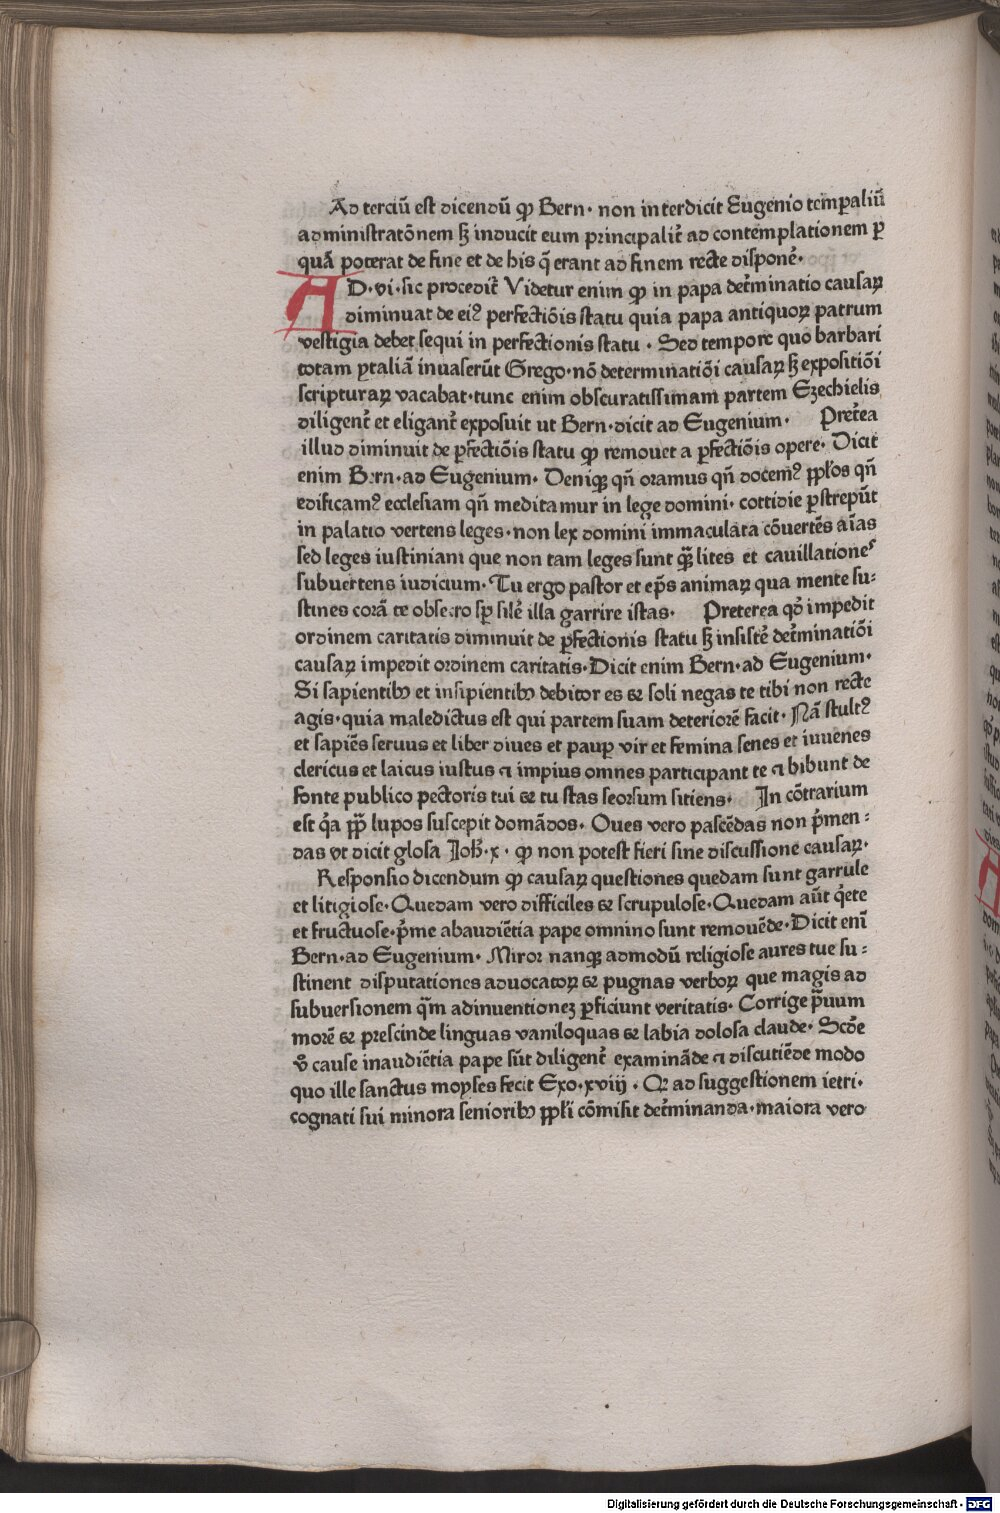 Ad terciū est dicendū ꝙ Bern· non interdicit Eugenio temꝑaliū
administratōnem sꝫ inducit eum principalit̄ ad contemplationem ꝑ
quā poterat de fine et de his q̄ erant ad finem recte disponē·
AD·vi·sic procedit̄ Videtur enim ꝙ in papa det̄minatio causaꝝ
diminuat de eiꝰ perfectiōis statu quia papa antiquoꝝ patrum
vestigia debet sequi in perfectionis statu · Sed tempore quo barbari
totam ytaliā inuaserūt Grego·nō determinatiōi causaꝝ sꝫ expositiōi
scripturaꝝ vacabat·tunc enim obscuratissimam partem Ezechielis
diligent̄ et eligant̄ exposuit ut Bern·dicit ad Eugenium· Pret̄ea
illud diminuit de ꝑfectiōis statu ꝙ remouet a ꝑfectiōis opere· Dicit
enim Bern·ad Eugenium· Deniqꝫ qn̄ oramus qn̄ docemꝰ pp̄los qn̄
edificamꝰ ecclesiam qn̄ meditamur in lege domini·cottidie ꝑstrepūt
in palatio vertens leges·non lex domini immaculata cōuertēs aīas
sed leges iustiniani que non tam leges sunt qꝫ̄ lites et cauillationes
subuertens iudicium·Tu ergo pastor et ep̄s animaꝝ qua mente su⸗
stines corā te obsecro sꝑ silē illa garrire istas· Preterea qd̄ impedit
ordinem caritatis diminuit de ꝑfectionis statu sꝫ insistē det̄minatiōi
causaꝝ impedit ordinem caritatis·Dicit enim Bern·ad Eugenium·
Si sapientibꝫ et insipientibꝫ debitor es & soli negas te tibi non recte
agis·quia maledictus est qui partem suam deteriorē facit· Nā stultꝰ
et sapiēs seruus et liber diues et pauꝑ vir et femina senes et iuuenes
clericus et laicus iustus ⁊ impius omnes participant te ⁊ bibunt de
fonte publico pectoris tui & tu stas seorsum sitiens· In cōtrarium
est qͣa pp̄ lupos suscepit domādos· Oues vero pascēdas non p̄men⸗
das vt dicit glosa Joh̄·x· ꝙ non potest fieri sine discussione causaꝝ·
Responsio dicendum ꝙ causaꝝ questiones quedam sunt garrule
et litigiose·Quedam vero difficiles & scrupulose·Quedam aūt qͥete
et fructuose·p̄me abaudiētia pape omnino sunt remouēde·Dicit enī
Bern·ad Eugenium· Miror nanqꝫ admodū religiose aures tue su⸗
stinent disputationes aduocatoꝝ & pugnas verboꝝ que magis ad
subuersionem qͣm adinuentionez ꝑficiunt veritatis· Corrige p̄uum
morē & prescinde linguas vaniloquas & labia dolosa claude· Scd̄e
v̄o cause inaudiētia pape sūt diligent̄ examināde ⁊ discutiēde modo
quo ille sanctus moyses fecit Exo·xviij · Qꝛ ad suggestionem ietri·
cognati sui minora senioribꝫ pp̄li cōmisit det̄minanda·maiora vero
Digitalisierung gefördert durch die Deutsche Forschungsgemeinschaft - DFG